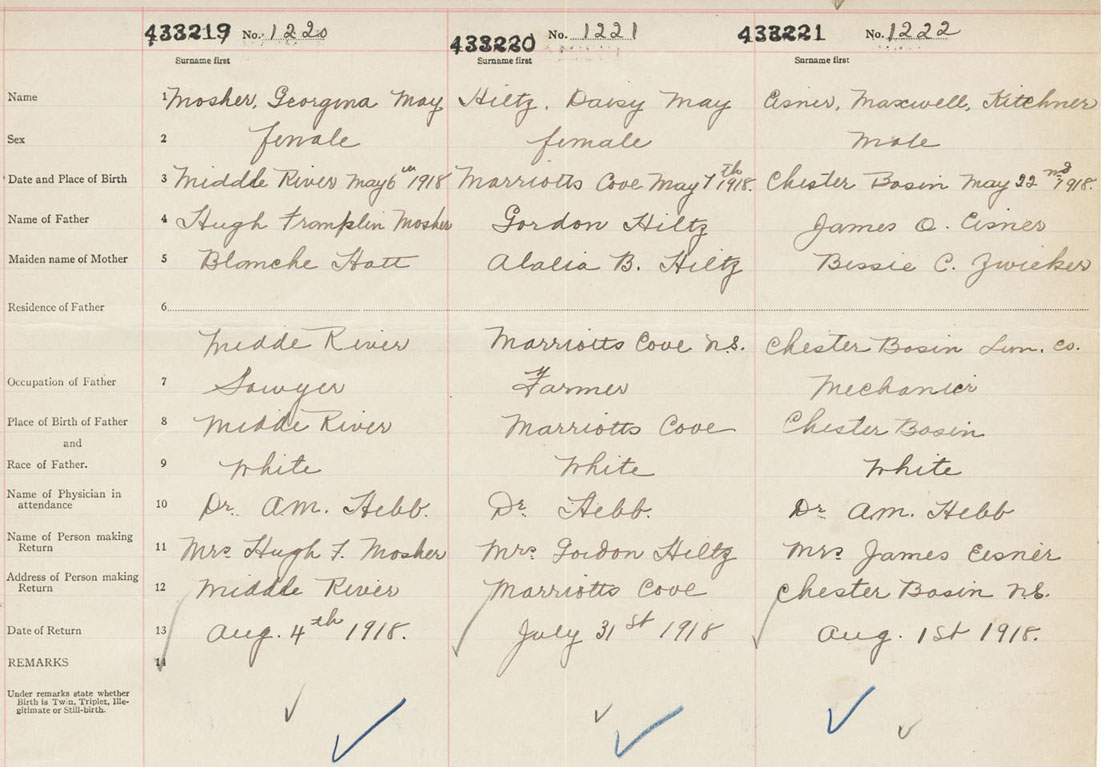 433219 No. 1220 433220 No. 1221 433221 No. 1222
Surname first Surname first Surname first
Name 1 Mosher, Georgina May Hiltz, Daisy May Eisner, Maxwell, Kitchner
Sex 2 female female male
Date and Place of Birth 3 Middle River May 6th 1918 Marriotts Cove May 7th 1918. Chester Basin May 22nd 1918.
Name of Father 4 Hugh Framplin Mosher Gordon Hiltz James O. Eisner
Maiden name of Mother 5 Blanche Hatt Alalia B. Hiltz Bessie C. Zwicker
Residence of Father 6
Midde River Marriotts Cove N.S. Chester Basin Lun. Co.
Occupation of Father 7 Sawyer Farmer Mechanic
Place of Birth of Father 8 Midde River Marriotts Cove Chester Basin
and
Race of Father. 9 White White White
Name of Physician in
attendance 10 Dr. A.M. Hebb. Dr Hebb. Dr A.M. Hebb
Name of Person making
Return 11 Mrs Hugh F. Mosher Mrs Gordon Hiltz Mrs James Eisner
Address of Person making
Return 12 Middle River Marriotts Cove Chester Basin N.S.
Date of Return 13 Aug. 4th 1918. July 31st 1918 Aug. 1st 1918.
REMARKS 14
Under remarks state whether
Birth is Twin, Triplet, Ille-
gitimate or Still-birth.